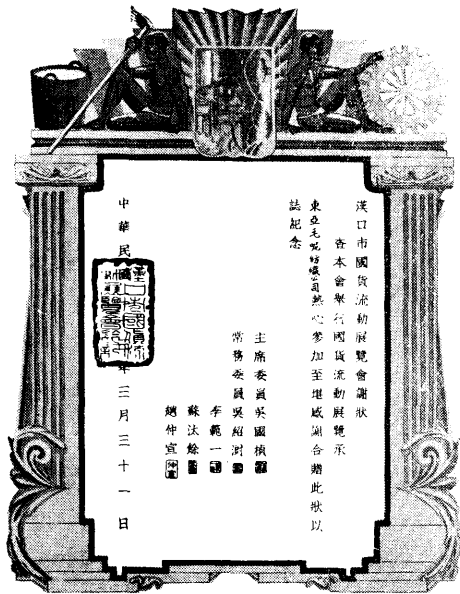 漢口市國貨流動展覽會謝狀
查本會舉行國貨流動展覽承
東亞毛呢紡織公司熱心參加至堪感謝合贈此狀以
誌記念
主席委員吳國楨
常務委員吳紹澍
李範一
蘇汰餘
趙仲宣
中華民國年三月三十一日